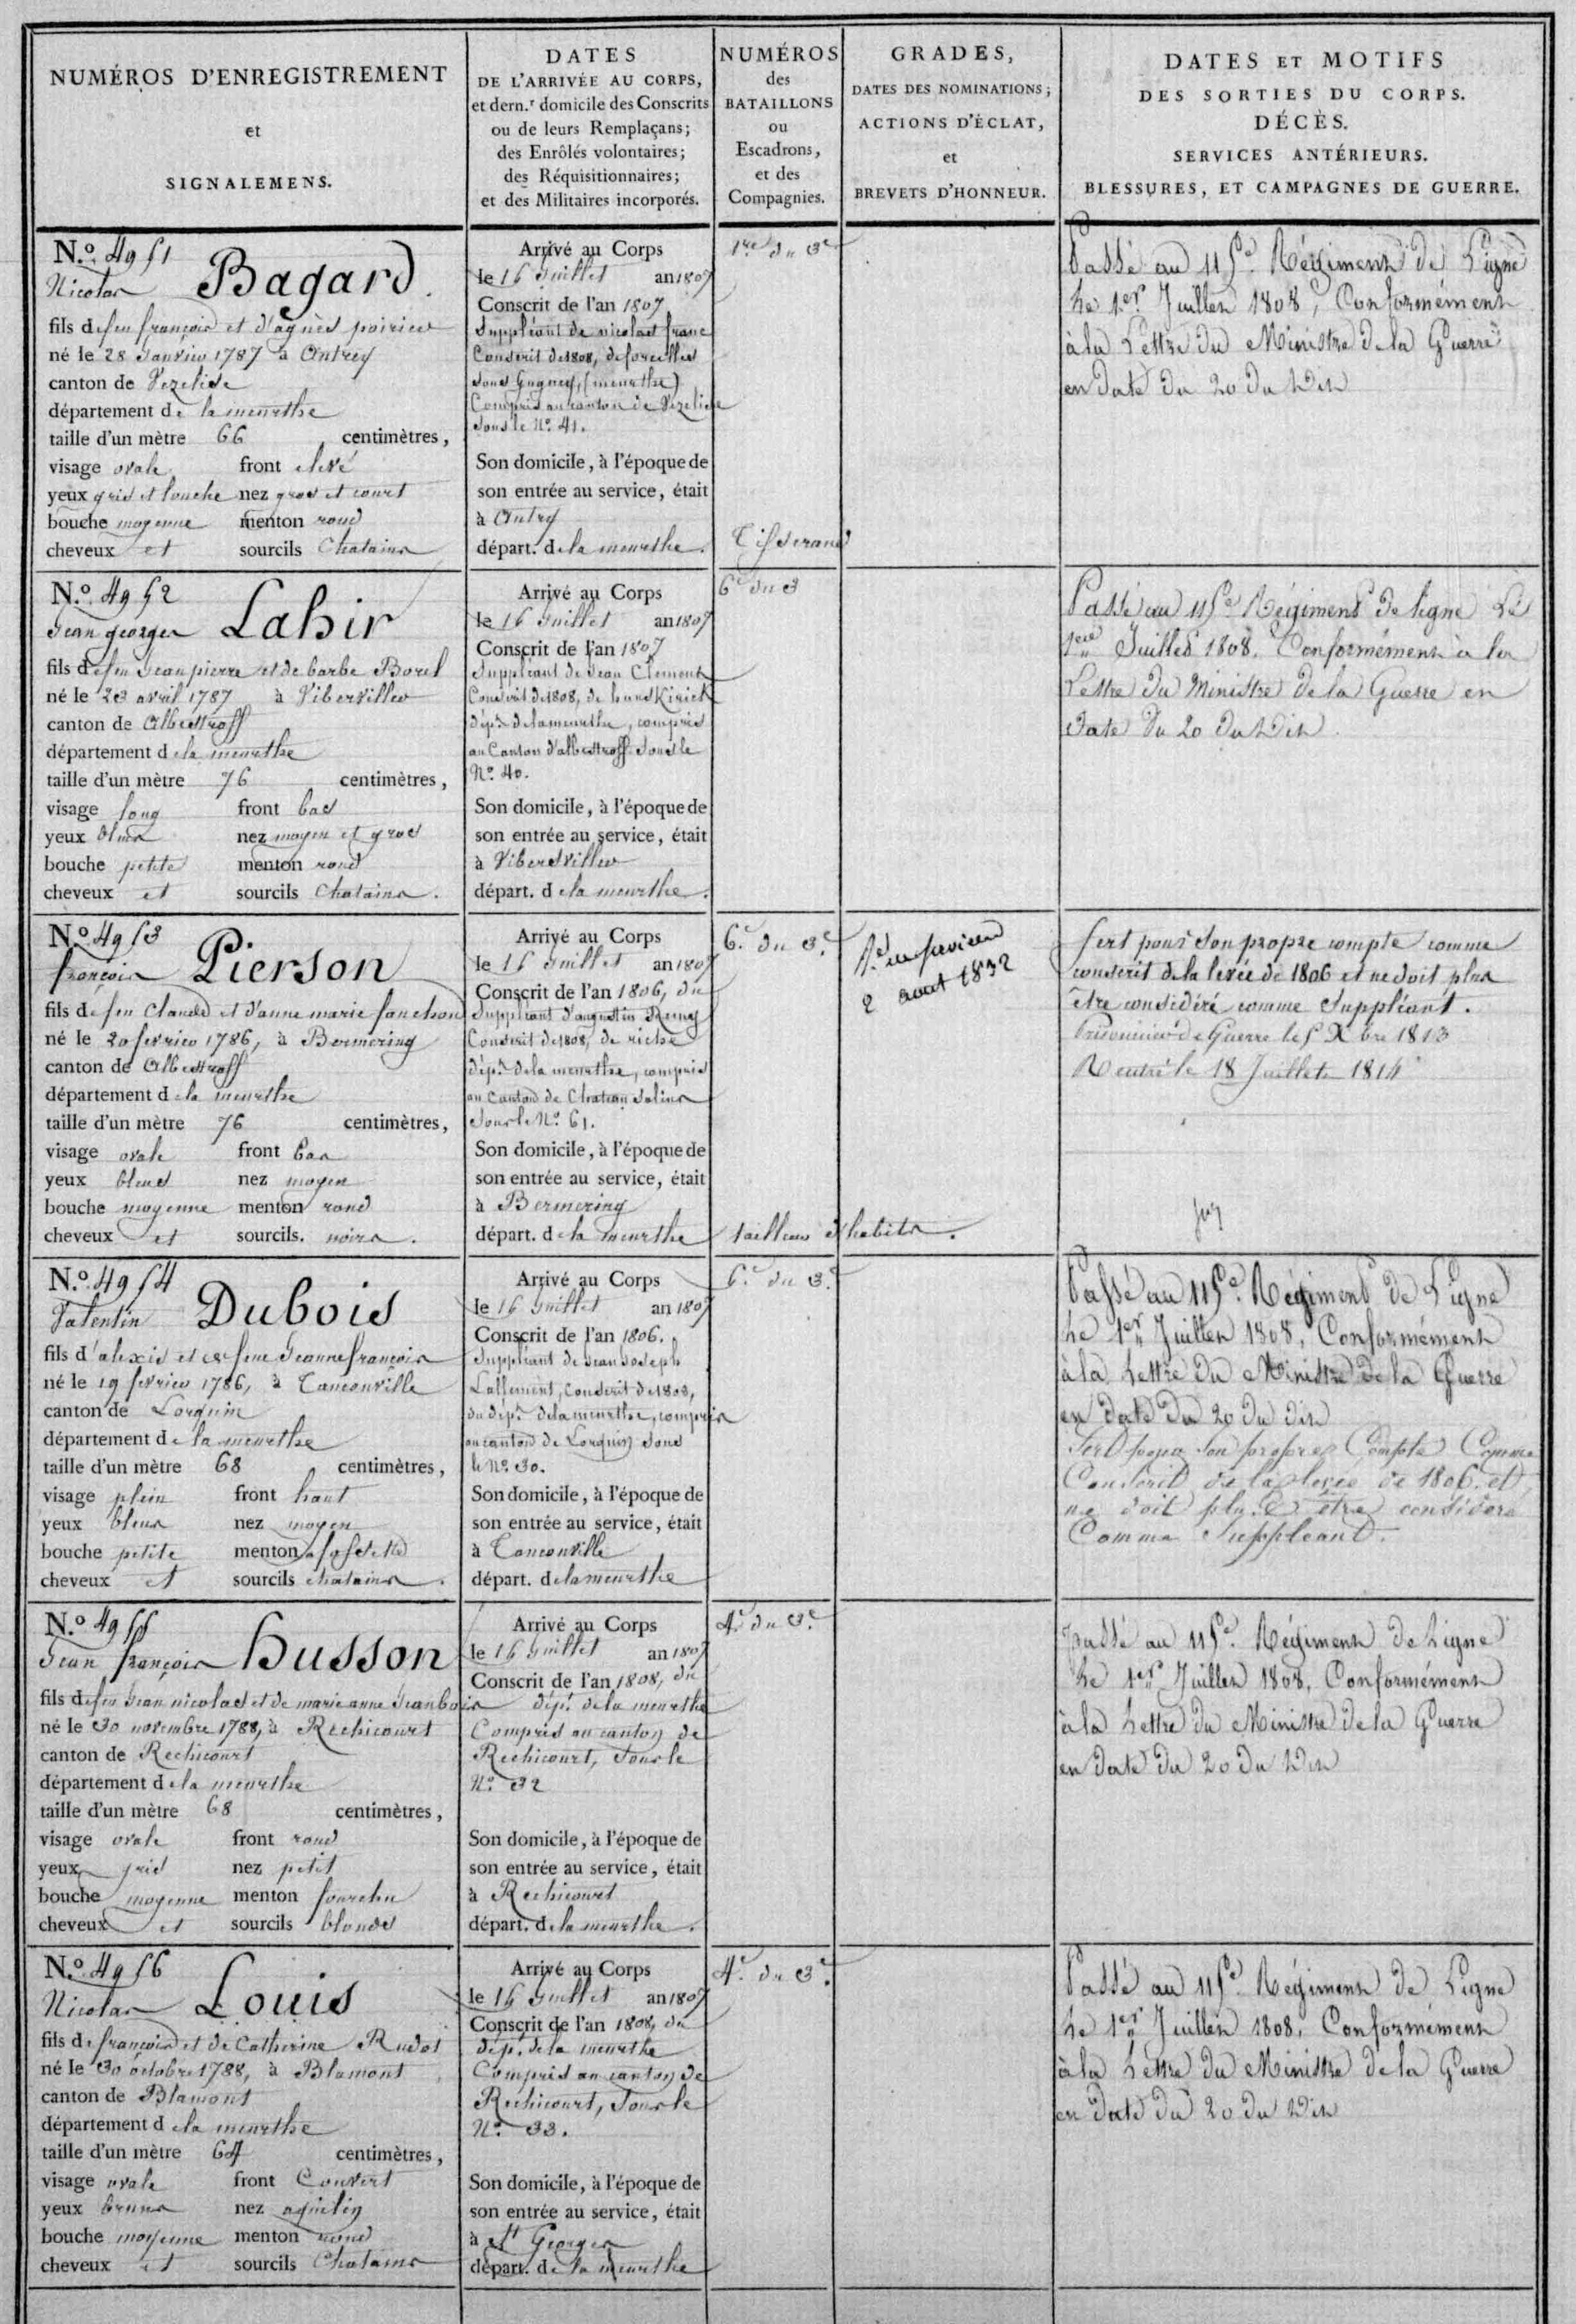 NUMÉROS D'ENREGISTREMENT
et
SIGNALEMENS.
DATES
DE L'ARRIVÉE AU CORPS,
et dern.r domicile des Conscrits
ou de leurs Remplaçans;
des Enrôlés volontaires;
des Réquisitionnaires;
et des Militaires incorporés.
NUMÉROS
des
BATAILLONS
ou
Escadrons,
et des
Compagnies.
GRADES,
DATES DES NOMINATIONS;
ACTIONS D'ÉCLAT,
et
BREVETS D'HONNEUR.
DATES ET MOTIFS
DES SORTIES DU CORPS.
DÉCÈS.
SERVICES ANTÉRIEURS.
BLESSURES, ET CAMPAGNES DE GUERRE.
N.o 4951
Nicolas Bagard
fils de feu françois et d'agnès poirier
né le 28 Janvier 1787 à Ontrey
canton de Vezelise
département de la meurthe
taille d'un mètre 66 centimètres,
visage ovale front elevé
yeux gris et louche nez gros et court
bouche moyenne menton rond
cheveux et sourcils Chatains
Arrivé au Corps
le 16 Juillet an 1807
Conscrit de l'an 1807
Suppléant de nicolas franc
Conscrit de 1808, de forcelles
sous Gugney, (meurthe)
Compris au canton de Vezelise
sous le No. 41.
Son domicile, à l'époque de
son entrée au service, était
à Ontrey
départ. de la meurthe.
1re du 3e
Tisserand
Passé au 115e Régiment de Ligne
Le 1er Juillet 1808, Conformément
à la Lettre du Ministre de la Guerre
en date du 20 du dit
N.o 4952
Jean georges Lahir
fils de feu Jean pierre et de barbe Borel
né le 23 avril 1787 à Vibersviller
canton de Albestroff
département de la meurthe
taille d'un mètre 76 centimètres,
visage long front bas
yeux bleus nez moyen et gros
bouche petite menton rond
cheveux et sourcils Chatains.
Arrivé au Corps
le 16 Juillet an 1807
Conscrit de l'an 1807
Suppléant de Jean Clement
Conscrit de 1808, de hunskirick
dépt. de la meurthe, compris
au Canton d'albestroff Sous le
No. 40.
Son domicile, à l'époque de
son entrée au service, était
à Vibersviller
départ. de la meurthe.
6e du 3
Passé au 115e Régiment de ligne Le
1er Juillet 1808. Conformément à la
Lettre du Ministre de la Guerre en
date du 20 du dit
N.o 4953
françois Pierson
fils de feu Claude et d'anne marie fanchon
né le 20 fevrier 1786, à Bermering
canton de Albestroff
département de la meurthe
taille d'un mètre 76 centimètres,
visage ovale front bas
yeux bleus nez moyen
bouche moyenne menton rond
cheveux et sourcils. noirs.
Arrivé au Corps
le 16 Juillet an 1807
Conscrit de l'an 1806, du
Suppléant d'augustin Remy
Conscrit de 1808, de riche
dépt. de la meurthe, compris
au Canton de Chateau Salins
Sous le No. 61.
Son domicile, à l'époque de
son entrée au service, était
à Bermering
départ. de la meurthe
6e du 3e
tailleur d'habits.
2 aout 1832
Sert pour son propre compte comme
conscrit de la levée de 1806 et ne doit plus
être considéré comme Suppléant.
Prisonnier de Guerre le 5 Xbre 1813
Rentré le 18 Juillet 1814
N.o 4954
Valentin Dubois
fils d'alexis et de feue Jeanne françois
né le 19 fevrier 1786, à Tanconville
canton de Lorquin
département de la meurthe
taille d'un mètre 68 centimètres,
visage plein front haut
yeux bleus nez moyen
bouche petite menton a fossette
cheveux et sourcils chatains.
Arrivé au Corps
le 16 Juillet an 1807
Conscrit de l'an 1806.
Suppléant de Jean Joseph
Lallement, Conscrit de 1808,
du dépt. de la meurthe, compris
au canton de Lorquin Sous
le No. 30.
Son domicile, à l'époque de
son entrée au service, était
à Tanconville
départ. de la meurthe
6e du 3e
Passé au 115e Régiment de Ligne
Le 1er Juillet 1808, Conformément
à la Lettre du Ministre de la Guerre
en date du 20 du dit
Sert pour son propre Compte Comme
Conscrit de la levée de 1806. et
ne doit plus être considéré
Comme Suppléant.
N.o 4955
Jean françois husson
fils de feu Jean nicolas et de marie anne Jeanbois
né le 30 novembre 1788, à Rechicourt
canton de Rechicourt
département de la meurthe
taille d'un mètre 68 centimètres,
visage ovale front rond
yeux gris nez petit
bouche moyenne menton fourchu
cheveux et sourcils blonds
Arrivé au Corps
le 16 Juillet an 1807
Conscrit de l'an 1808, du
dépt. de la meurthe
Compris au canton de
Rechicourt, Sous le
No. 32
Son domicile, à l'époque de
son entrée au service, était
à Rechicourt
départ. de la meurthe.
4e du 3e
passé au 115e Régiment de Ligne
Le 1er Juillet 1808, Conformément
à la Lettre du Ministre de la Guerre
en date du 20 du dit
N.o 4956
Nicolas Louis
fils de françois et de Catherine Rudot
né le 30 octobre 1788, à Blamont
canton de Blamont
département de la meurthe
taille d'un mètre 64 centimètres,
visage ovale front Couvert
yeux bruns nez aquilin
bouche moyenne menton rond
cheveux et sourcils Chatains
Arrivé au Corps
le 16 Juillet an 1807
Conscrit de l'an 1808, du
dépt. de la meurthe
Compris au canton de
Rechicourt, Sous le
No. 33.
Son domicile, à l'époque de
son entrée au service, était
à St Georges
départ. de la meurthe
4e du 3e
Passé au 115e Régiment de Ligne
Le 1er Juillet 1808, Conformément
à la Lettre du Ministre de la Guerre
en date du 20 du dit